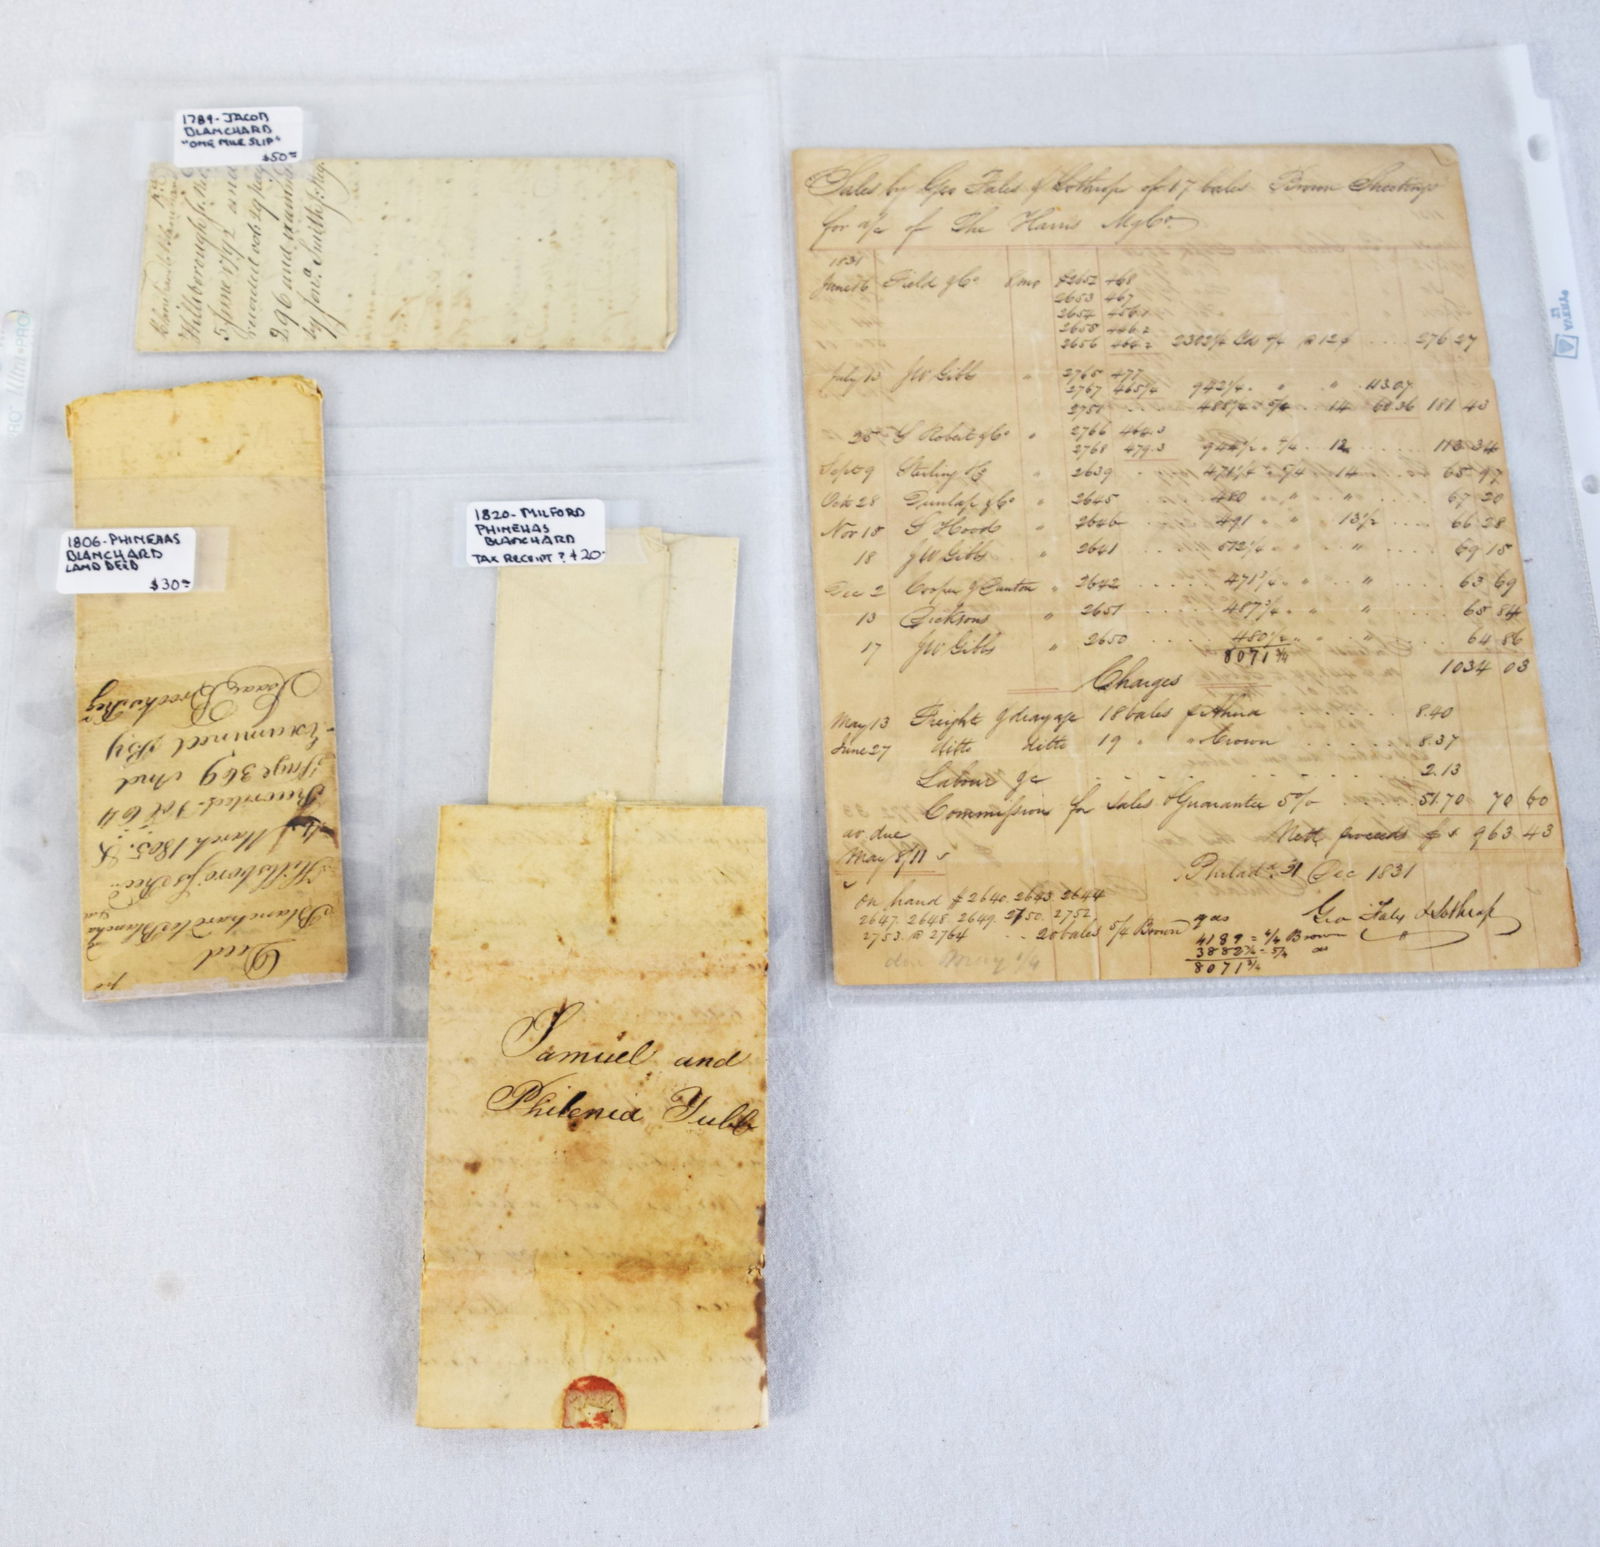 1789-JACOB
BLANCHARD
"ONE MILE SLIP"
$50=
Hillsborough ss. Rec.
5 June 1792 and
recorded vob. 29 pag
296 and examin
by Jona. Smith Reg
1806-PHINEHAS
BLANCHARD
LAND DEED
$30=
Deed
Blanchard to Blancha
Hillsboro' ss Rec.
March 1805. &
Recorded Vol 64
Page 369 And
Examined By
Isaac Brooks Reg
1820-MILFORD
PHINEHAS
BLANCHARD
TAX RECEIPT? $20-
Samuel and
Philenia Tubb
Sales by Geo Fales & Lothrop of 17 bales Brown Sheetings
for a/c of The Harris Mg Co.
1831
June 16 Field & Co 8 mo # 2652 468
2653 467
2654 456.1
2655 446.2
2656 464.2 2302¼ Yds 4/4 @ 12¢ .... 276 27
July 13 JW Gibb " 2765 477
2767 465¼ 942¼ . " " . 113.07
2751 . . 488¼ " 5/4 .. 14 68.36 181 43
25 S Robert & Co " 2766 464.3
2768 479.3 944½ " 4/4 .. 12 ...... 113 34
Sept 9 Sterling " 2639 . . 471¼ " 5/4 .. 14 .... 65 97
Oct 28 Dunlap & Co " 2645 ... 480 " " " .... 67 20
Nov 18 S Hood " 2646 ... 491 " " 13½ .... 66 28
18 JW Gibbs " 2641 ... 512¼ " " " .... 69 15
Dec 2 Cooper & " 2642 .... 471¾ " " " .... 63 69
13 Dicksons " 2651 .... 487¾ " " " .... 65 84
17 JW Gibbs " 2650 .... 480½ " " " .... 64 86
8071¾ 1034 03
Charges
May 13 Freight & drayage 18 bales p ...... 8.40
June 27 ditto ditto 19 " " Crown ...... 8.37
Labour &c ............ 2.13
Commission for Sales & Guarantee 5% .... 51.70 70 60
av. due Nett proceeds $ 963 43
May 8/11
Philad. 31 Dec 1831
on hand # 2640. 2643. 2644
2647. 2648. 2649. 2750. 2752. Geo Fales & Lothrop
2753. @ 2764 ... 20 bales 5/4 Brown
4189 = 4/4 Brown
3882¾ = 5/4 do
8071¾